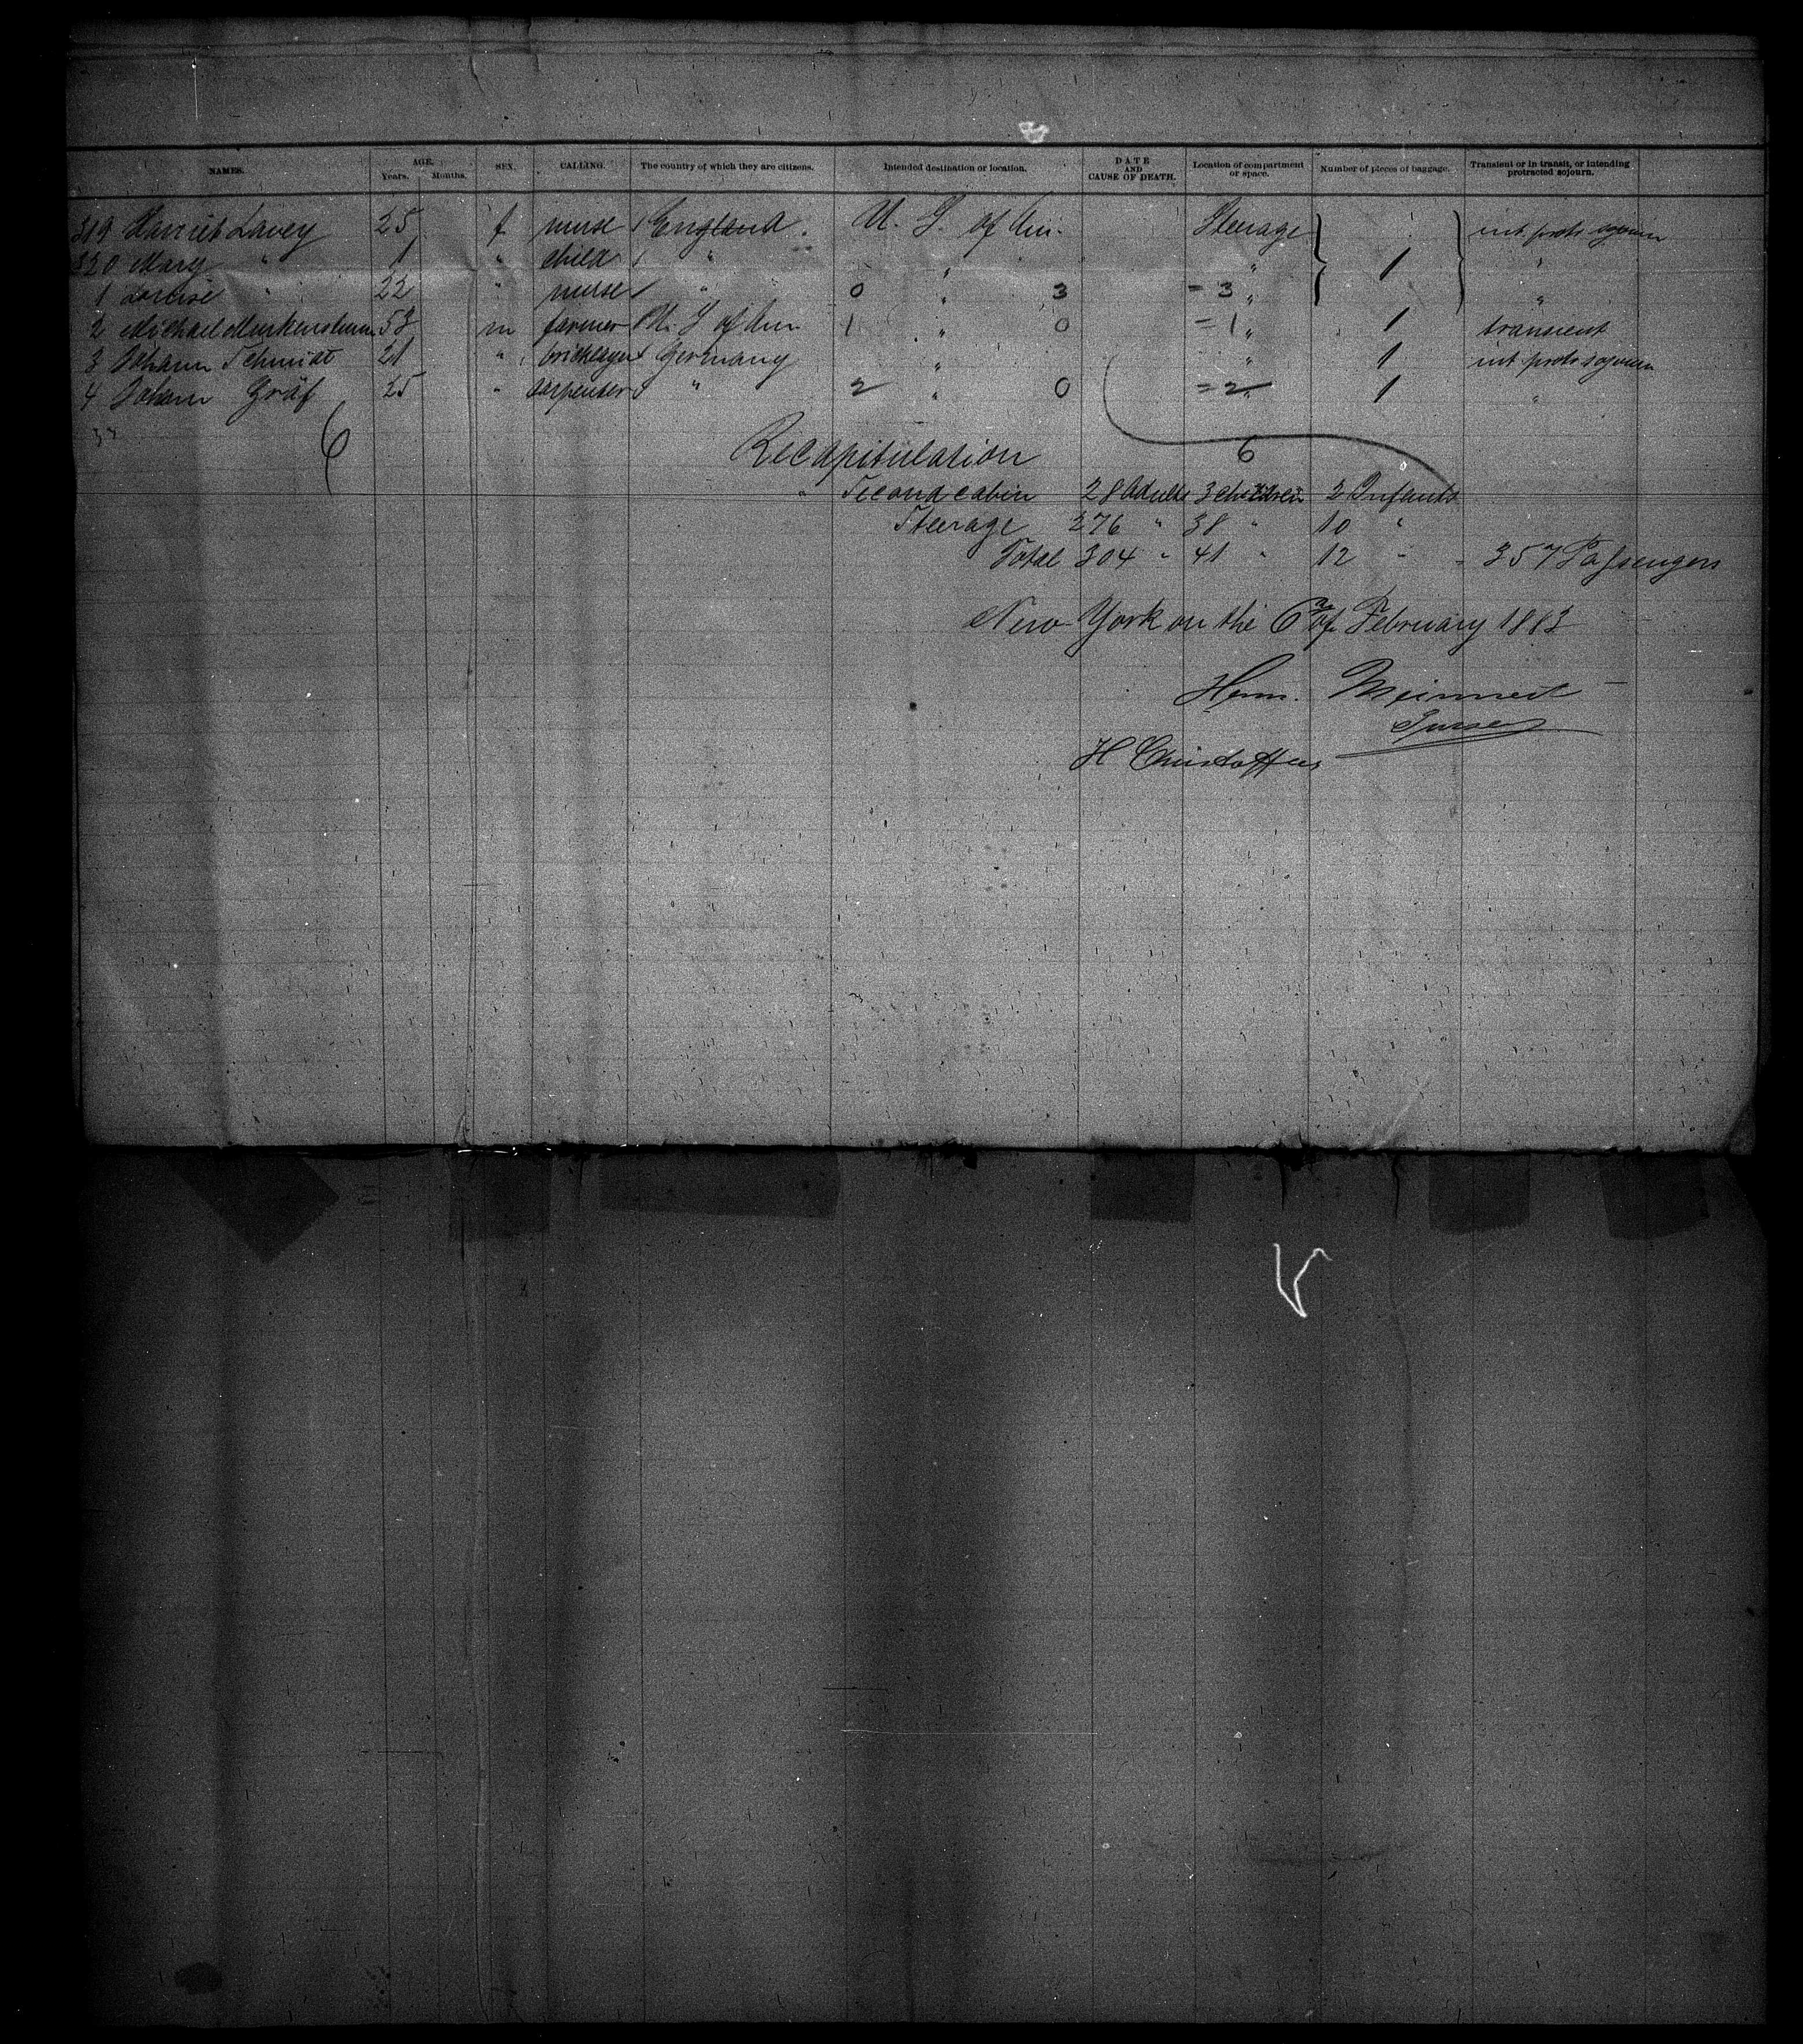 NAMES. AGE. Years. Months. SEX. CALLING. The country of which they are citizens. Intended destination or location. DATE AND CAUSE OF DEATH. Location of compartment or space. Number of pieces of baggage. Transient or in transit, or intending protracted sojourn.
319 Harriet Lavey 25 f nurse England. U. S. of Am. Steerage int protr sojourn
320 Mary " 1 " child " " " 1 "
1 Louise " 22 " nurse " 0 " 3 = 3 " "
2 Michael 53 m farmer U. S of Am 1 " 0 = 1 " 1 transient
3 Johann Schmidt 21 " bricklayer Germany " " 1 int protr sojourn
4 Johann Gräf 25 " carpenter " 2 " 0 = 2 " 1 "
6
Recapitulation 6
Second cabin 28 Adults 3 children 2 Infants
Steerage 276 " 38 " 10 "
Total 304 " 41 " 12 " 357 Passengers
New York on the 6th of February 1883
Herm. Meinnert
Purser
H Christoffers